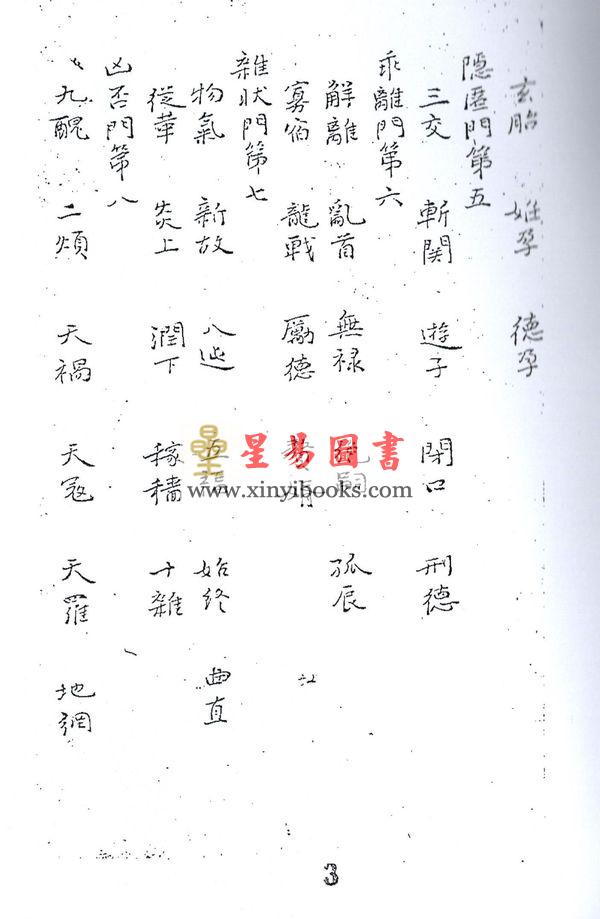 玄胎 姙孕 德孕
隠匿門第五
三交 斬関 遊子 閉口 刑德
乖離門第六
解離 亂首 無禄 絶嗣 孤辰
寡宿 龍戰 厲德
雜狀門第七
物氣 新故 八迍 五福 始终 曲直
從革 炎上 潤下 稼穡 十雜
凶否門第八
九醜 二煩 天禍 天冦 天羅 地網
星易圖書
www.xinyibooks.com
3